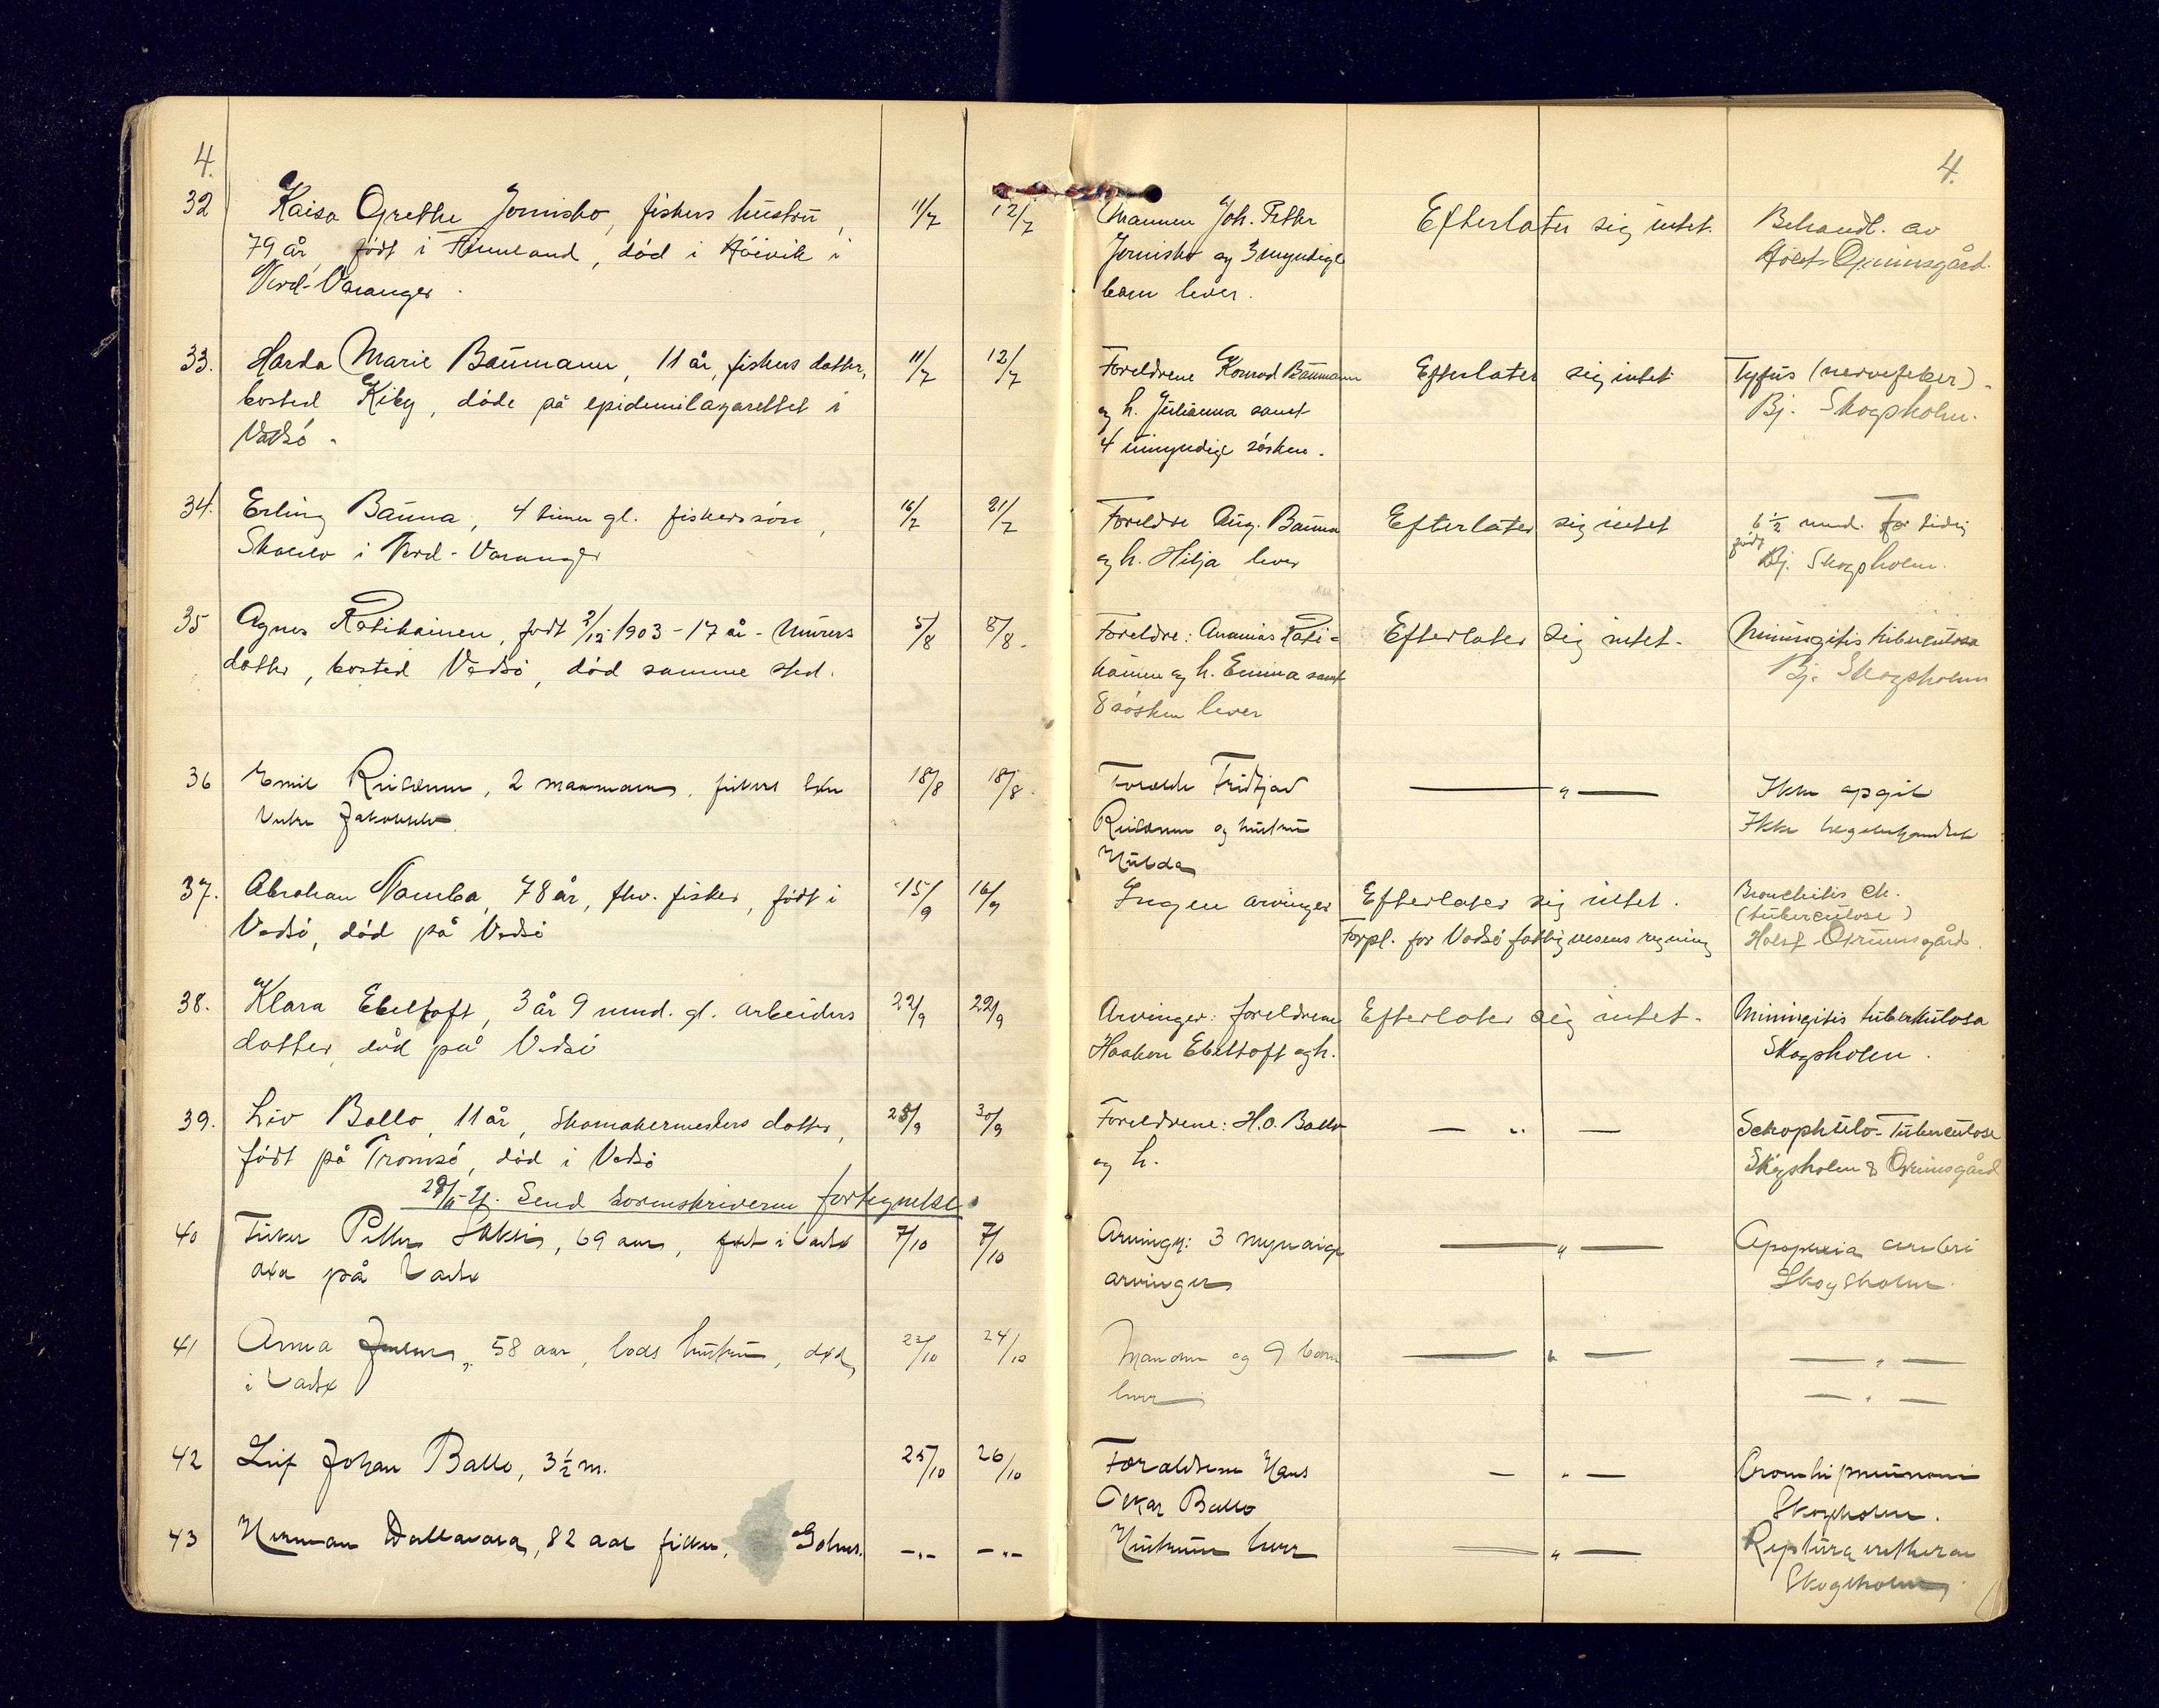 4.
4.
32 Kaisa Grethe Jomisko, fiskers hustru, 11/7 12/7 Mannen Joh. Petter Efterlater sig intet. Behandl. av
79 år, født i Finnland, død i Høivik i Jomisko og 3 myndige Holst-Grimsgård.
Nord-Varanger. barn lever.
33. Harda Marie Baumann, 11 år, fiskers datter, 11/7 12/7 Foreldrene Konrad Baumann Efterlater sig intet Tyfus (nervefeber).
bosted Kiby, døde på epidemilazarettet i og h. Julianna samt Bj. Skogsholm.
Vadsø. 4 umyndige søsken.
34. Erling Bauna, 4 timer gl. fiskerssøn, 16/7 21/7 Foreldre Aug. Bauna Efterlater sig intet 6 1/2 mnd. For tidig
født
i Nord-Varanger og h. Hilja lever Bj. Skogsholm.
35 Agnes Patikainen, født 2/12 1903 - 17 år - murers 5/8 8/8. Foreldre: Ananias Pati- Efterlater sig intet. Miningitis tuberculosa
datter, bosted Vadsø, død samme sted. kainen og h. Emma samt Bj. Skogsholm
8 søsken lever
36 Emil, 2 maaneder, fiskers søn 18/8 18/8. Forældre Fridtjov — " — Ikke opgit
Vestre Jakobselv og hustru Ikke lægebehandlet
Hulda
37. Abraham Namba, 78 år, fhv. fisker, født i 15/9 16/9 Ingen arvinger Efterlater sig intet. Bronchitis ch.
(tuberculose)
Vadsø, død på Vadsø Forpl. for Vadsø fattigvesens regning Holst-Grimsgård.
38. Klara Ebeltoft, 3 år 9 mnd. gl. arbeiders 22/9 22/9 Arvinger: foreldrene Efterlater sig intet. Miningitis tuberkulosa
datter, død på Vadsø Haakon Ebeltoft og h. Skogsholm.
39. Liv Ballo, 11 år, skomakermesters datter, 28/9 30/9 Foreldrene: H.O. Ballo — " — Scrophulo-Tuberculose
født på Tromsø, død i Vadsø og h. Skogsholm & Grimsgård
Send sorenskriveren fortegnelse.
40 Fisker Petter Saksi, 69 aar, født i Vadsø 7/10 7/10 Arvinger: 3 myndige — " — Apoplexia cerebri
død på Vadsø arvinger Skogsholm.
41 Anna Jensen, 58 aar, lods hustru, død 23/10 24/10 Manden og 9 barn — " — — " —
i Vadsø lever — " —
42 Leif Johan Ballo, 3 1/2 m. 25/10 26/10 Forældrene Hans — " — Bronchipneumoni
Oskar Ballo Skogsholm.
43 Herman Wallavara, 82 aar fisker, Golnes. — " — — " — Hustruen lever — " — Ruptura urethrae
Skogsholm.